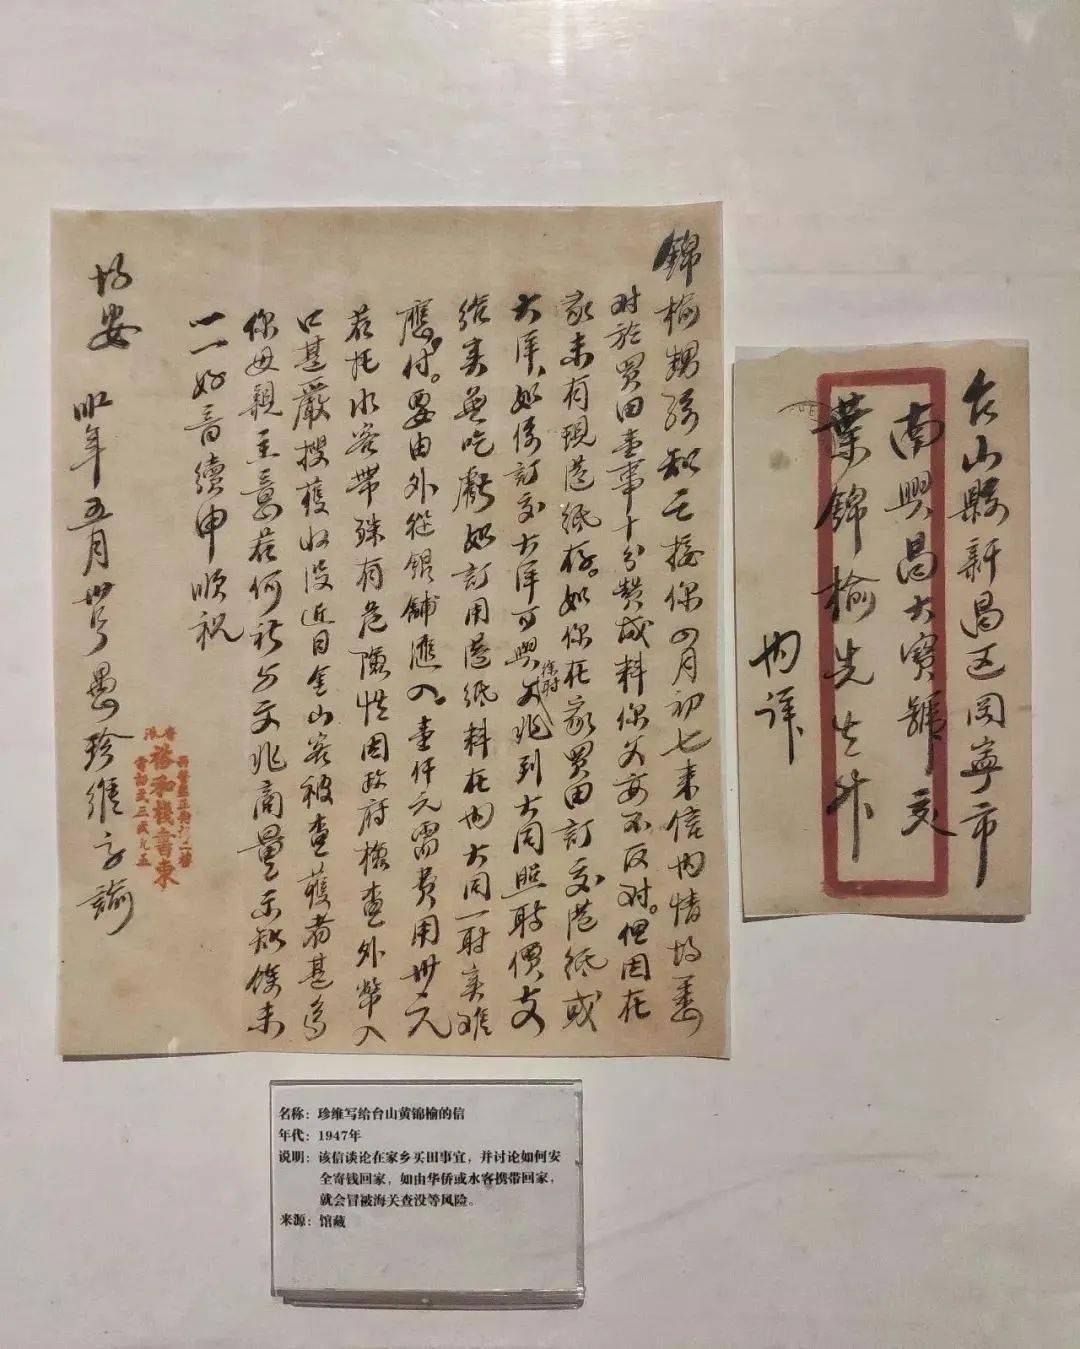 錦榆甥孫知之接你四月初七來信內情均悉
对於買田壹事十分贊成料你父母不反对。但因在
家未有現港紙存。如你在家買田訂交港紙或
大洋、如係訂交大洋可與文兆到大同照時價支
給美無吃虧如訂用港紙料在內大同一時奀难
應付。要由外從銀舖滙入。壹仟元需費用卅元
若托水客帶殊有危險性因政府檢查外幣入
口甚嚴搜獲收没近日金山客被查獲者甚多
你母親主意若何祈与文兆商量示知餘未
一一好音續申順祝
均安
年五月卅号愚珍維手諭
香港
裕和機書柬
台山縣新昌区囘寧市
南興昌大寶號交
葉錦榆先生升
内详
名称：珍维写给台山黄锦榆的信
年代：1947年
说明：该信谈论在家乡买田事宜，并讨论如何安
全寄钱回家，如由华侨或水客携带回家，
就会冒被海关查没等风险。
来源：馆藏